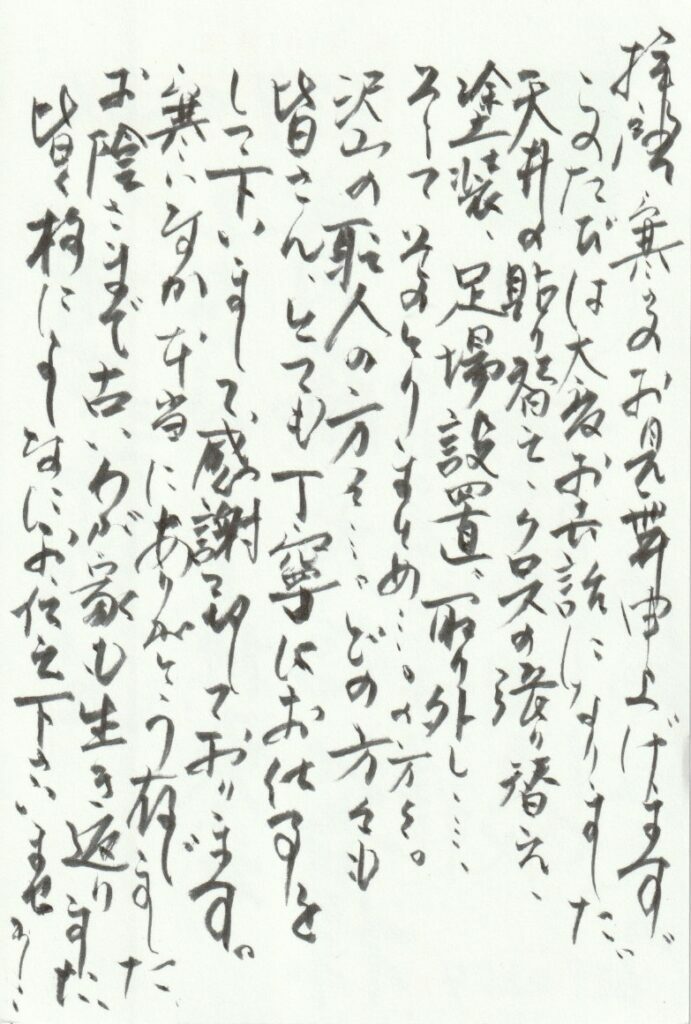 拝啓 寒中お見舞申上げます。
このたびは大変お世話になりました。
天井の貼り替え、クロスの張り替え、
塗装、足場設置、取り外し……、
そして そのとりまとめ……。の方々。
沢山の職人の方々……。どの方々も
皆さん、とても丁寧なお仕事を
して下いまして、感謝致しております。
寒いなか本当にありがとう存じました
お陰さまで古いわが家も生き返りました、
皆々様によしなにお伝え下さいませ